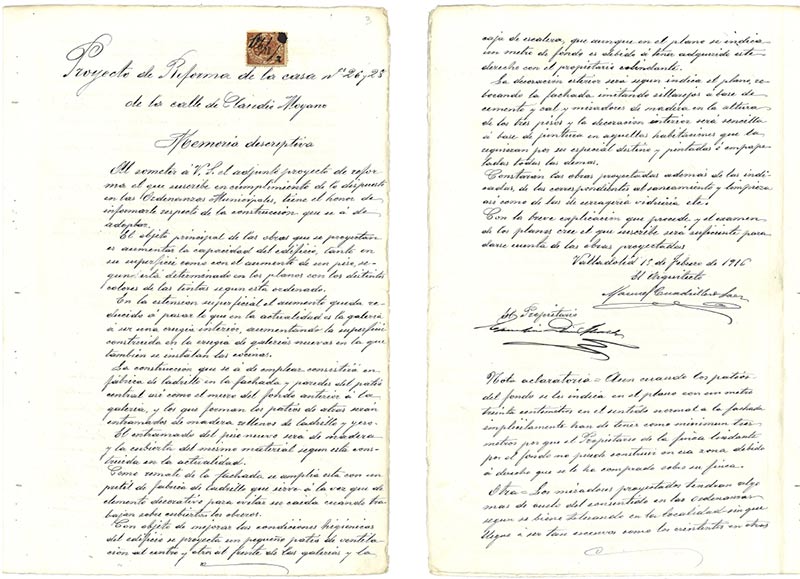 3
Proyecto de Reforma de la casa nº 26 y 28
de la calle de Claudio Moyano
Memoria descriptiva
Al someter á V.S. el adjunto proyecto de refor-
ma el que suscribe en cumplimiento de lo dispuesto
en las Ordenanzas Municipales, tiene el honor de
informarle respecto de la construcción que se á de
adoptar.
El objeto principal de las obras que se proyectan
es aumentar la capacidad del edificio, tanto en
su superficie como con el aumento de un piso, se-
gun está determinado en los planos con los distintos
colores de las tintas segun esta ordenado.
En la estension superficial el aumento queda re-
ducido á pasar lo que en la actualidad es la galeria
á ser una crugia interior, aumentando la superficie
construida en la crugia de galerias nuevas en la que
tambien se instalan las cocinas.
La construcción que se á de emplear consistirá en
fábrica de ladrillo en la fachada y paredes del patio
central asi como el muro del fondo anterior á la
galeria, y los que forman los patios de atras serán
entramados de madera rellenos de ladrillo y yeso.
El entramado del piso nuevo será de madera
y la cubierta del mismo material segun esta cons-
truida en la actualidad.
Como remate de la fachada se amplia esta con un
petril de fabrica de ladrillo que sirve á la vez que de
elemento decorativo para evitar su caida cuando tra-
bajan sobre cubiertas los obreros.
Con objeto de mejorar las condiciones higienicas
del edificio se proyecta un pequeño patio de ventila-
cion al centro y otro al frente de las galerias y la
caja de escalera, que aunque en el plano se indica
un metro de fondo es debido á tener adquirido este
derecho con el propietario colindante.
La decoración esterior será segun indica el plano, re-
bocando la fachada imitando sillarejos á base de
cemento y cal y miradores de madera en la altura
de los tres pisos y la decoración interior será sencilla
á base de pintura en aquellas habitaciones que la
requieran por su especial destino y pintadas ó empape-
ladas todas las demas.
Constarán las obras proyectadas además de las indi-
cadas, de las correspondientes al saneamiento y limpieza
asi como de las de cerrageria vidrieria etc.
Con la breve explicación que precede y el examen
de los planos cree el que suscribe será suficiente para
darse cuenta de las obras proyectadas
Valladolid 15 de Febrero de 1916
El Arquitecto
El Propietario
Nota aclaratoria = Aun cuando los patios
del fondo se les indica en el plano con un metro
treinta centimetros en el sentido normal a la fachada
implicitamente han de tener como minimun tres
metros por que el Propietario de la finca lindante
por el fondo no puede construir en esa zona debido
á derecho que se le ha comprado sobre su finca.
Otra = Los miradores proyectados tendran algo
mas de vuelo del consentido en las ordenanzas
segun se viene tolerando en la localidad sin que
llegue a ser tan escesivo como los existentes en otras